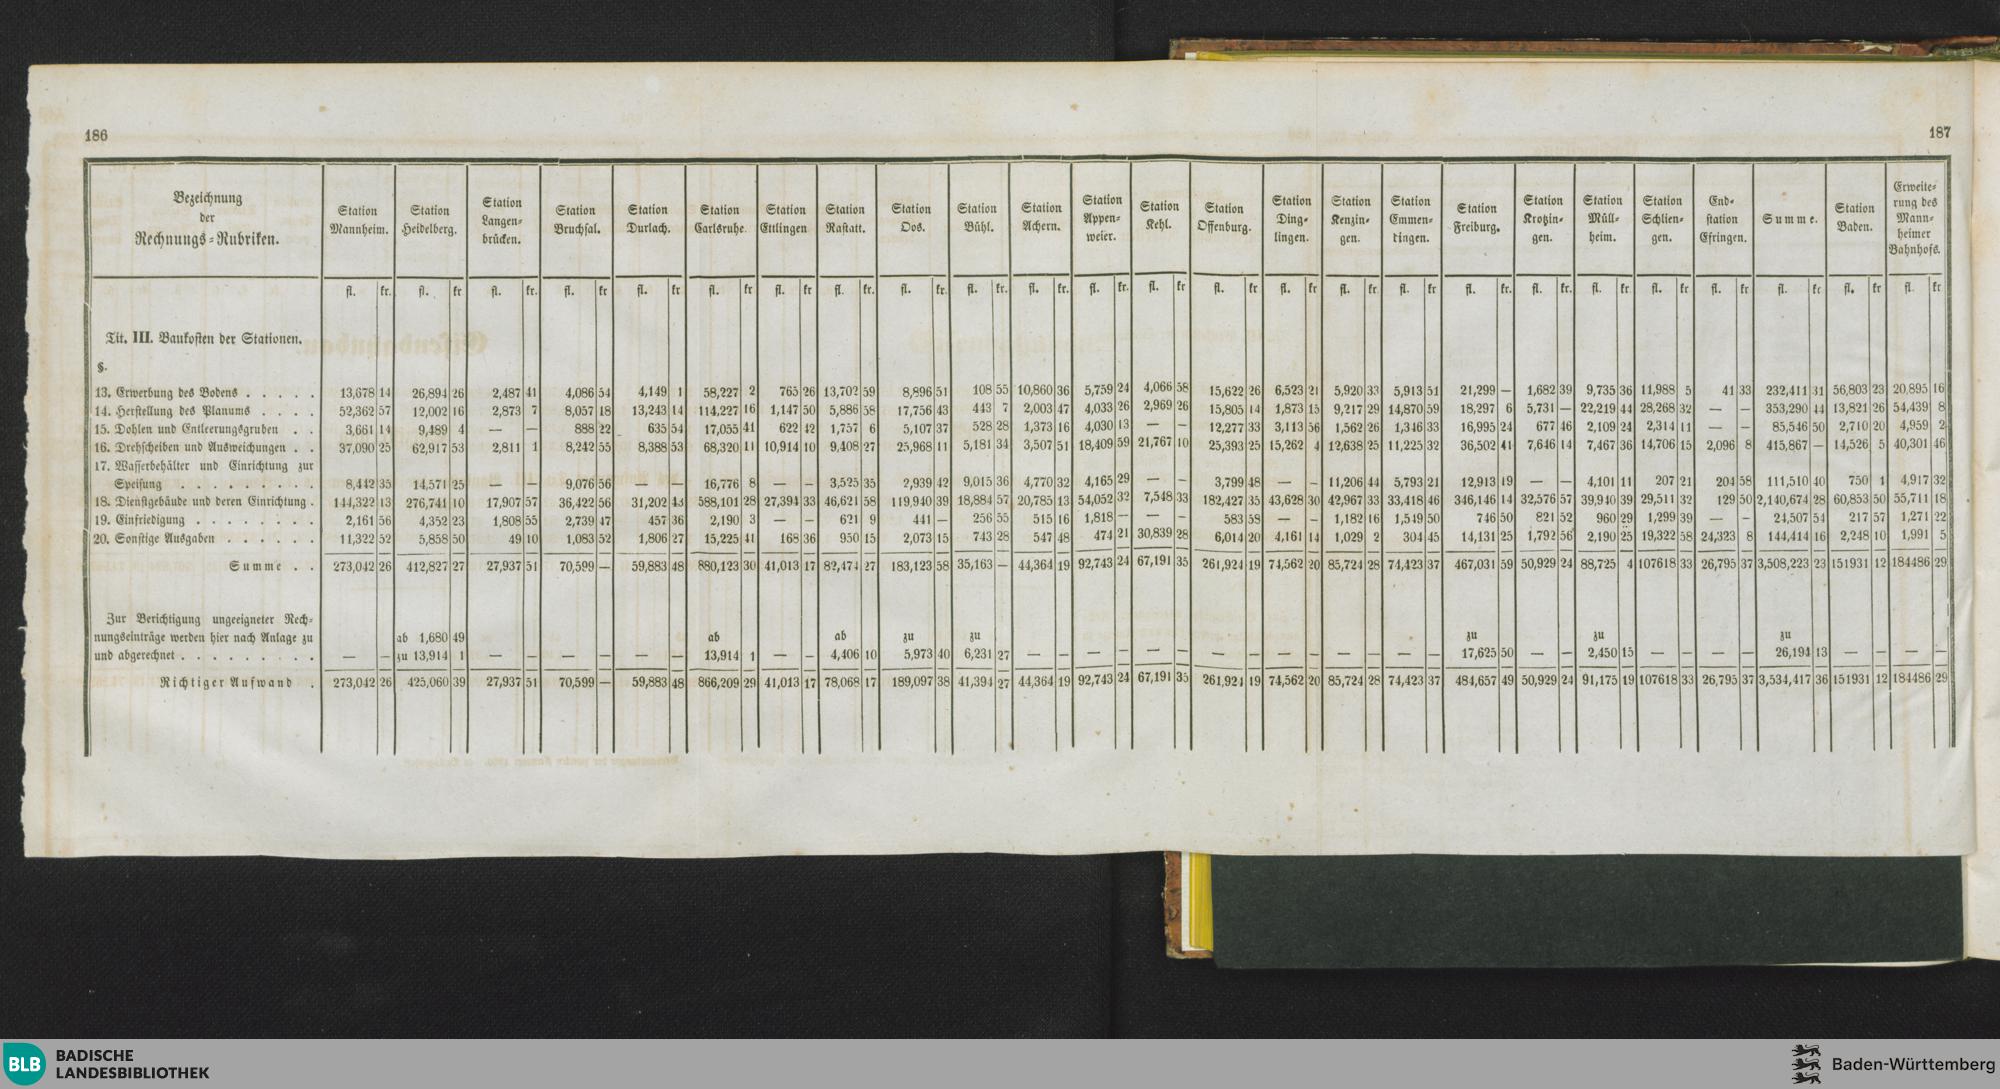 186
187
Bezeichnung der Rechnungs-Rubriken. | Station Mannheim. | Station Heidelberg. | Station Langen-brücken. | Station Bruchsal. | Station Durlach. | Station Carlsruhe. | Station Ettlingen | Station Rastatt. | Station Oos. | Station Bühl. | Station Achern. | Station Appen-weier. | Station Kehl. | Station Offenburg. | Station Ding-lingen. | Station Kenzin-gen. | Station Emmen-dingen. | Station Freiburg. | Station Krozin-gen. | Station Müll-heim. | Station Schlien-gen. | End-station Efringen. | Summe. | Station Baden. | Erweite-rung des Mann-heimer Bahnhofs.
fl. kr. | fl. kr | fl. kr. | fl. kr | fl. kr | fl. kr | fl. kr. | fl. kr. | fl. kr. | fl. kr. | fl. kr. | fl. kr. | fl. kr | fl. kr | fl. kr | fl. kr | fl. kr | fl. kr. | fl. kr | fl. kr | fl. kr | fl. kr | fl. kr | fl. kr | fl. kr
Tit. III. Baukosten der Stationen.
§.
13. Erwerbung des Bodens . . . . . | 13,678 14 | 26,894 26 | 2,487 41 | 4,086 54 | 4,149 1 | 58,227 2 | 765 26 | 13,702 59 | 8,896 51 | 108 55 | 10,860 36 | 5,759 24 | 4,066 58 | 15,622 26 | 6,523 21 | 5,920 33 | 5,913 51 | 21,299 — | 1,682 39 | 9,735 36 | 11,988 5 | 41 33 | 232,411 31 | 56,803 23 | 20,895 16
14. Herstellung des Planums . . . . | 52,362 57 | 12,002 16 | 2,873 7 | 8,057 18 | 13,243 14 | 114,227 16 | 1,147 50 | 5,886 58 | 17,756 43 | 443 7 | 2,003 47 | 4,033 26 | 2,969 26 | 15,805 14 | 1,873 15 | 9,217 29 | 14,870 59 | 18,297 6 | 5,731 — | 22,219 44 | 28,268 32 | — — | 353,290 44 | 13,821 26 | 54,439 8
15. Dohlen und Entleerungsgruben . . | 3,661 14 | 9,489 4 | — — | 888 22 | 635 54 | 17,055 41 | 622 42 | 1,757 6 | 5,107 37 | 528 28 | 1,373 16 | 4,030 13 | — — | 12,277 33 | 3,113 56 | 1,562 26 | 1,346 33 | 16,995 24 | 677 46 | 2,109 24 | 2,314 11 | — — | 85,546 50 | 2,710 20 | 4,959 2
16. Drehscheiben und Ausweichungen . . | 37,090 25 | 62,917 53 | 2,811 1 | 8,242 55 | 8,388 53 | 68,320 11 | 10,914 10 | 9,408 27 | 25,968 11 | 5,181 34 | 3,507 51 | 18,409 59 | 21,767 10 | 25,393 25 | 15,262 4 | 12,638 25 | 11,225 32 | 36,502 41 | 7,646 14 | 7,467 36 | 14,706 15 | 2,096 8 | 415,867 — | 14,526 5 | 40,301 46
17. Wasserbehälter und Einrichtung zur
Speisung . . . . . . . . . | 8,442 35 | 14,571 25 | — — | 9,076 56 | — — | 16,776 8 | — — | 3,525 35 | 2,939 42 | 9,015 36 | 4,770 32 | 4,165 29 | — — | 3,799 48 | — — | 11,206 44 | 5,793 21 | 12,913 19 | — — | 4,101 11 | 207 21 | 204 58 | 111,510 40 | 750 1 | 4,917 32
18. Dienstgebäude und deren Einrichtung . | 144,322 13 | 276,741 10 | 17,907 57 | 36,422 56 | 31,202 43 | 588,101 28 | 27,394 33 | 46,621 58 | 119,940 39 | 18,884 57 | 20,785 13 | 54,052 32 | 7,548 33 | 182,427 35 | 43,628 30 | 42,967 33 | 33,418 46 | 346,146 14 | 32,576 57 | 39,940 39 | 29,511 32 | 129 50 | 2,140,674 28 | 60,853 50 | 55,711 18
19. Einfriedigung . . . . . . . . | 2,161 56 | 4,352 23 | 1,808 55 | 2,739 47 | 457 36 | 2,190 3 | — — | 621 9 | 441 — | 256 55 | 515 16 | 1,818 — | — — | 583 58 | — — | 1,182 16 | 1,549 50 | 746 50 | 821 52 | 960 29 | 1,299 39 | — — | 24,507 54 | 217 57 | 1,271 22
20. Sonstige Ausgaben . . . . . . | 11,322 52 | 5,858 50 | 49 10 | 1,083 52 | 1,806 27 | 15,225 41 | 168 36 | 950 15 | 2,073 15 | 743 28 | 547 48 | 474 21 | 30,839 28 | 6,014 20 | 4,161 14 | 1,029 2 | 304 45 | 14,131 25 | 1,792 56 | 2,190 25 | 19,322 58 | 24,323 8 | 144,414 16 | 2,248 10 | 1,991 5
Summe . . | 273,042 26 | 412,827 27 | 27,937 51 | 70,599 — | 59,883 48 | 880,123 30 | 41,013 17 | 82,474 27 | 183,123 58 | 35,163 — | 44,364 19 | 92,743 24 | 67,191 35 | 261,924 19 | 74,562 20 | 85,724 28 | 74,423 37 | 467,031 59 | 50,929 24 | 88,725 4 | 107618 33 | 26,795 37 | 3,508,223 23 | 151931 12 | 184486 29
Zur Berichtigung ungeeigneter Rech-
nungseinträge werden hier nach Anlage zu | ab 1,680 49 | ab | ab | zu | zu | zu | zu | zu
und abgerechnet . . . . . . . . . | — — | zu 13,914 1 | — — | — — | — — | 13,914 1 | — — | 4,406 10 | 5,973 40 | 6,231 27 | — — | — — | — — | — — | — — | — — | — — | 17,625 50 | — — | 2,450 15 | — — | — — | 26,194 13 | — — | — —
Richtiger Aufwand . | 273,042 26 | 425,060 39 | 27,937 51 | 70,599 — | 59,883 48 | 866,209 29 | 41,013 17 | 78,068 17 | 189,097 38 | 41,394 27 | 44,364 19 | 92,743 24 | 67,191 35 | 261,924 19 | 74,562 20 | 85,724 28 | 74,423 37 | 484,657 49 | 50,929 24 | 91,175 19 | 107618 33 | 26,795 37 | 3,534,417 36 | 151931 12 | 184486 29
BLB
BADISCHE
LANDESBIBLIOTHEK
Baden-Württemberg